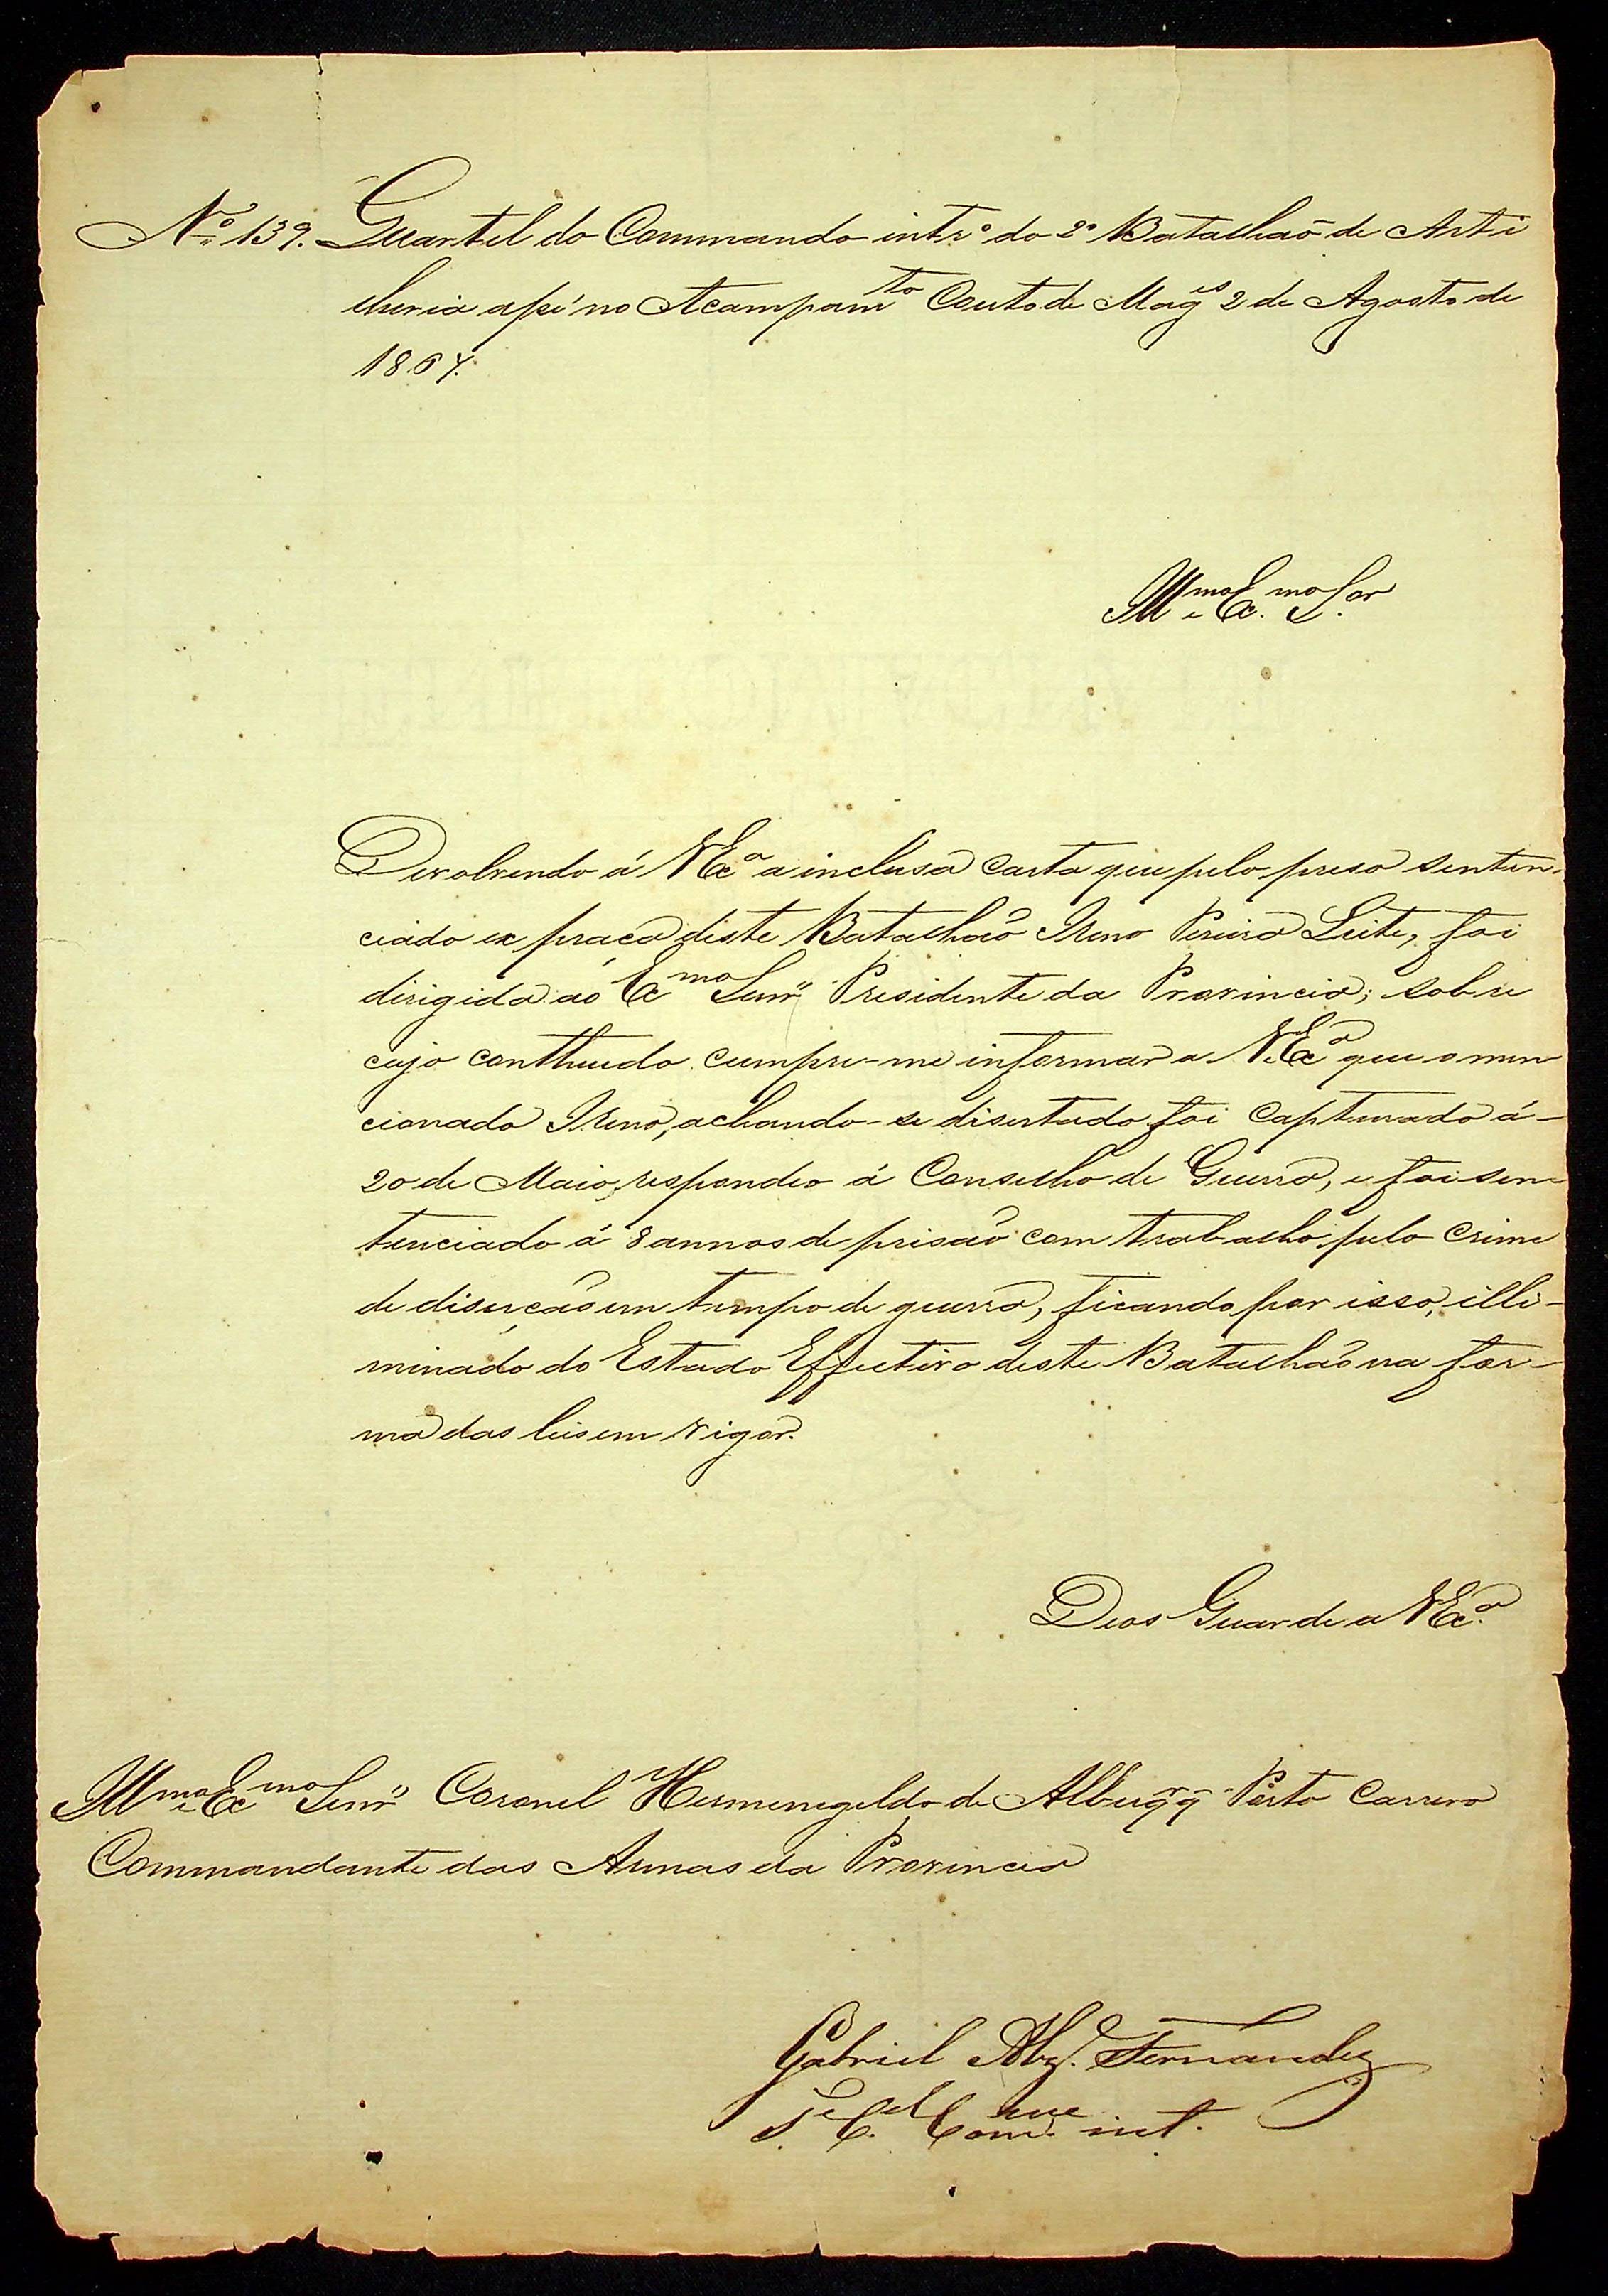 Nº 139. Quartel do Commando intrº do 2º Batalhaõ de Arti
lheria apé no Acampamto Couto de Mages 2 de Agosto de
1867.
Illmo e Exmo Sor
Devolvendo á VExa a inclusa carta que pelo preso senten-
ciado ex praça deste Batalhaõ Ireno Pereira Leite, foi
dirigida ao Exmo Senr Presidente da Provincia; sobre
cujo contheudo cumpre-me informar a VExa que o men
cionado Ireno, achando-se disertado foi capturado á-
20 de Maio, respondeo á Conselho de Guerra, e foi sen-
tenciado á 8 annos de prisaõ com trabalho pelo crime
de diserçaõ em tempo de guerra, ficando por isso, illi-
minado do Estado Effectivo deste Batalhaõ na for-
ma das leis em vigor.
Deos Guarde a VExa
Illmo e Exmo Senr Coronel Hermenegildo de Albuqq Porto Carrero
Commandante das Armas da Provincia
Gabriel Alz. Fernandez
Te Cel Come int.